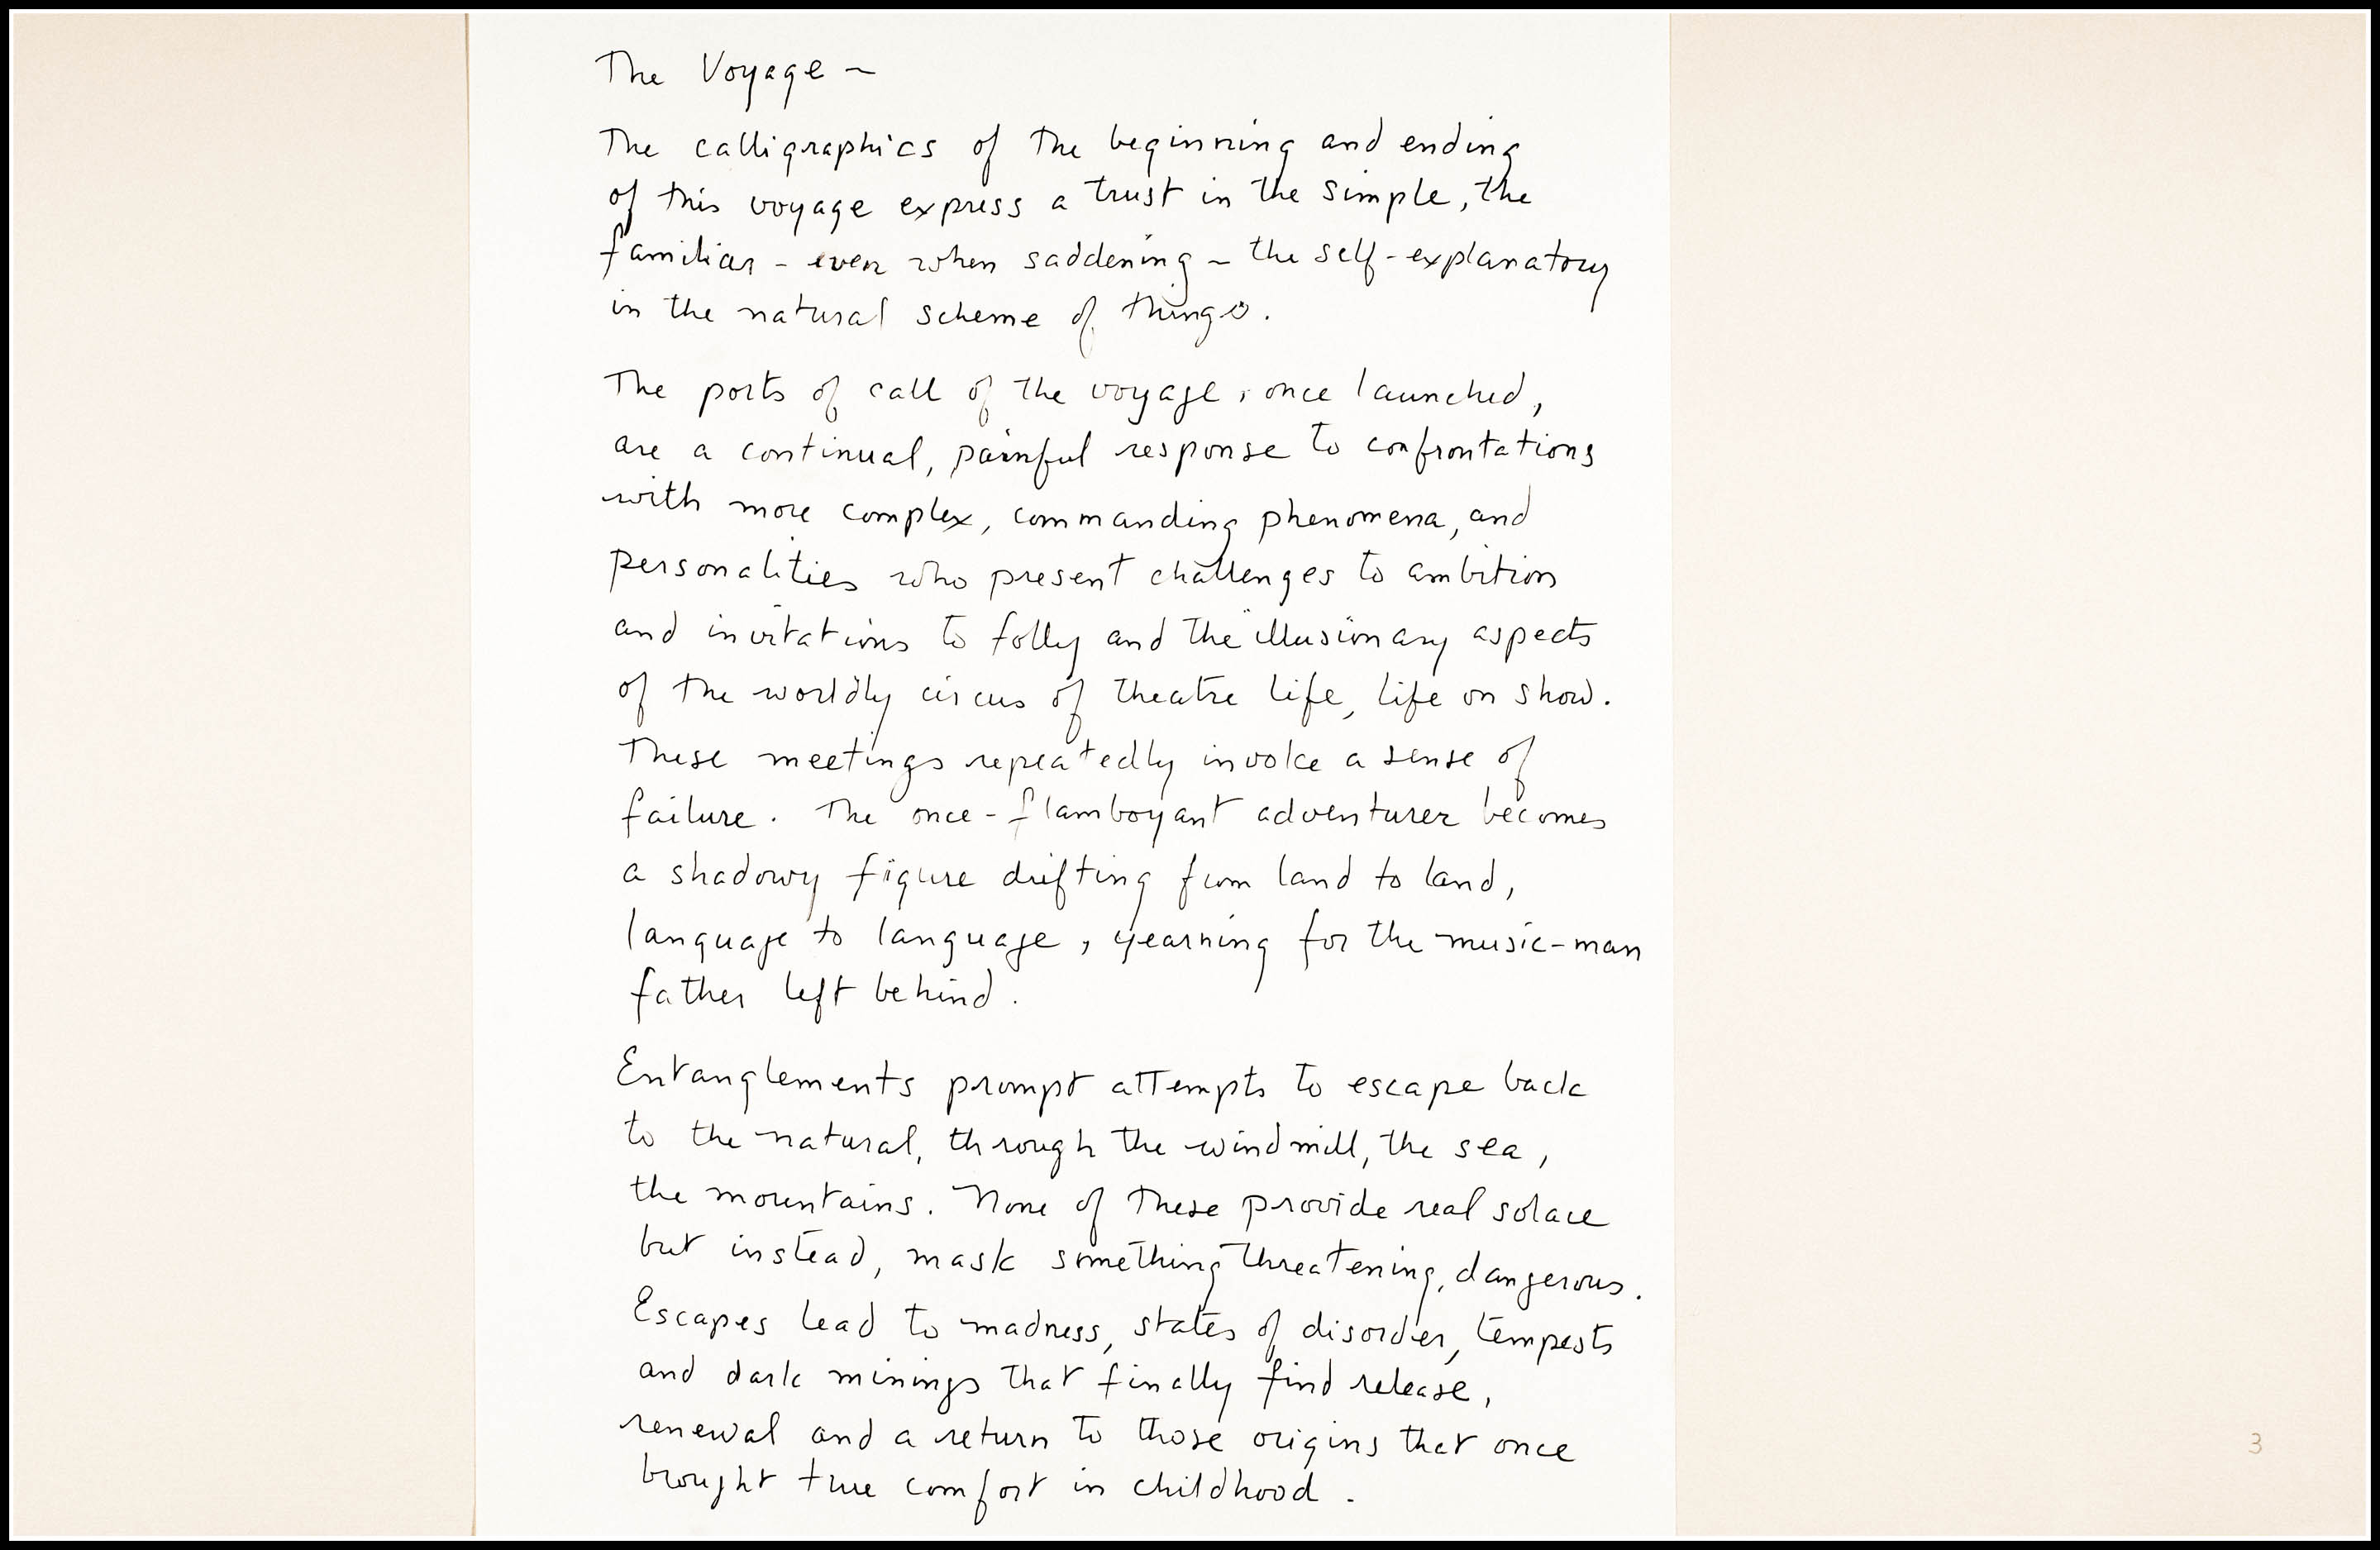 The Voyage ~
The calligraphics of the beginning and ending
of this voyage express a trust in the simple, the
familiar - even when saddening - the self-explanatory
in the natural scheme of things.
The ports of call of the voyage, once launched,
are a continual, painful response to confrontations
with more complex, commanding phenomena, and
personalities who present challenges to ambition
and invitations to folly and the illusionary aspects
of the worldly circus of theatre life, life on show.
These meetings repeatedly invoke a sense of
failure. The once-flamboyant adventurer becomes
a shadowy figure drifting from land to land,
language to language, yearning for the music-man
father left behind.
Entanglements prompt attempts to escape back
to the natural, through the windmill, the sea,
the mountains. None of these provide real solace
but instead, mask something threatening, dangerous.
Escapes lead to madness, states of disorder, tempests
and dark minings that finally find release,
renewal and a return to those origins that once
brought true comfort in childhood.
3